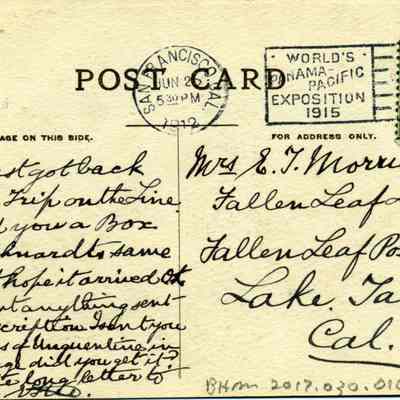 POST CARD
SAN FRANCISCO, CAL.
JUN 25
5 30 PM
1912
WORLD'S
PANAMA-
PACIFIC
EXPOSITION
1915
AGE ON THIS SIDE.
FOR ADDRESS ONLY.
st got back
Trip on the Line
you a Box
to same
hope it arrived Ok
anything sent
I sent you
Unguentine in
did you get it?
long letter to
Mrs E. T. Morri
Fallen Leaf
Fallen Leaf Pos
Lake Ta
Cal.
BHM 2017.030.010